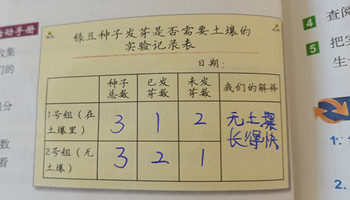 动手册
绿豆种子发芽是否需要土壤的
实验记录表
日期:
种子总数 已发芽数 未发芽数 我们的解释
1号组(在土壤里) 3 1 2 无土壤长得快
2号组(无土壤) 3 2 1
4 查阅
5 把
生
1.
2.